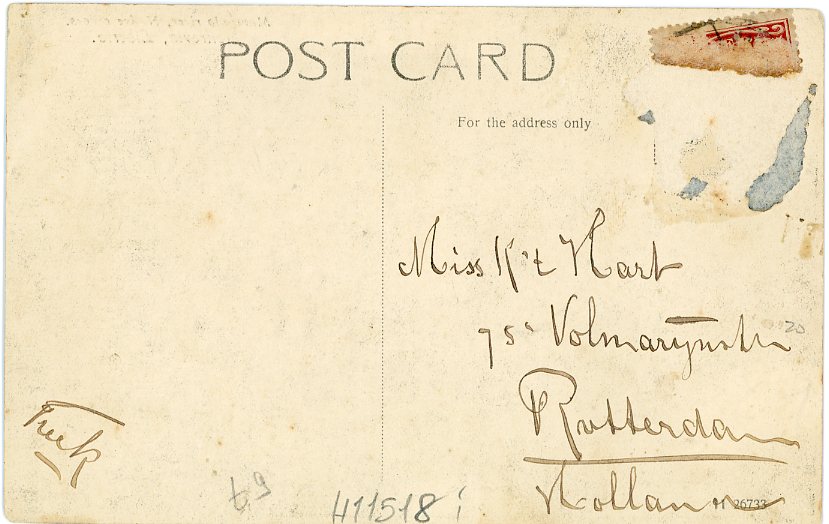 POST CARD
For the address only
Miss K. 't Hart
75a Volmarijnstr
Rotterdam
Holland
Freek
411518 i
67
20
H 26733